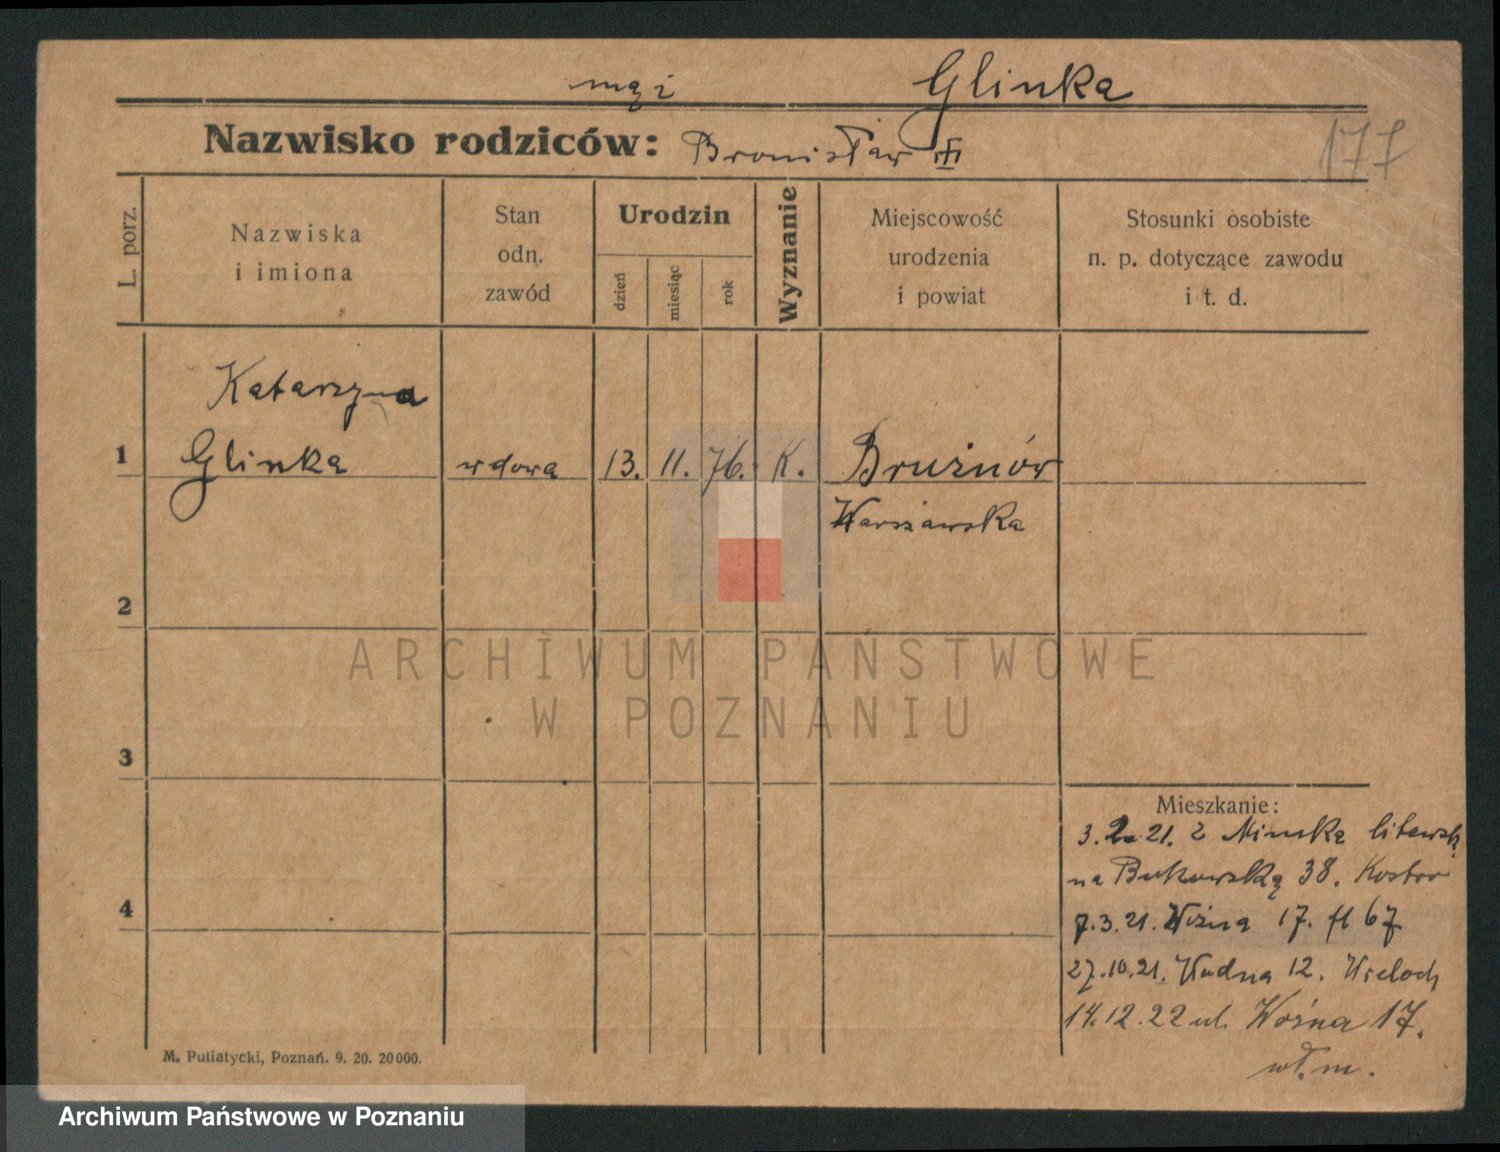 mąż Glinka
Nazwisko rodziców: Bronisław
177
L. porz.
Nazwiska i imiona
Stan odn. zawód
Urodzin
dzień
miesiąc
rok
Wyznanie
Miejscowość urodzenia i powiat
Stosunki osobiste n. p. dotyczące zawodu i t. d.
Katarzyna
1 Glinka wdowa 13. 11. 76. K. Brużnów
Warszawska
2
3
4
Mieszkanie:
3.2.21. z Mińska litewsk.
na Bukowską 38.
7.3.21. Woźna 17. fl 67
27.10.21. 12.
14.12.22 ul. Woźna 17.
wł. m.
M. Putiatycki, Poznań. 9. 20. 20000.
ARCHIWUM PAŃSTWOWE
W POZNANIU
Archiwum Państwowe w Poznaniu